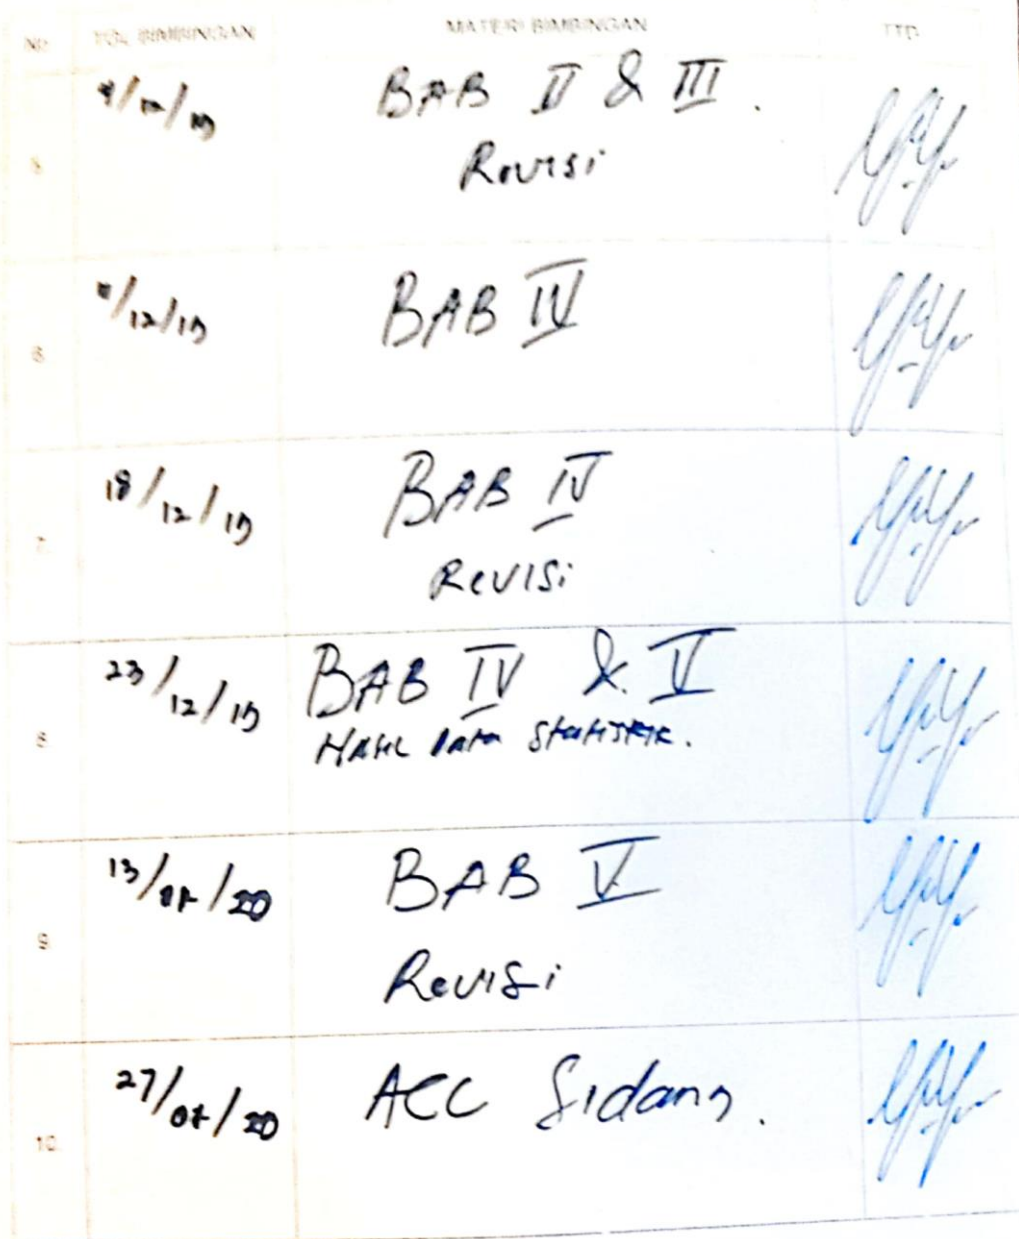 No. TGL BIMBINGAN MATERI BIMBINGAN TTD
5. 4/12/19 BAB II & III.
Revisi
6. 11/12/19 BAB IV
7. 18/12/19 BAB IV
Revisi
8. 23/12/19 BAB IV & V
Hasil Data Statistik.
9. 13/01/20 BAB V
Revisi
10. 27/01/20 ACC Sidang.